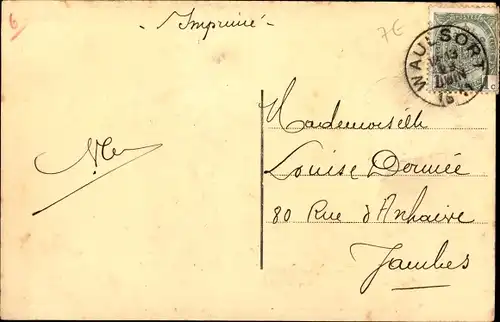 6
- Imprimé -
7€
WAULSORT
13
JUIN
16
1c
Mademoiselle
Louise Dermée
80 Rue d'Enhaive
Jambes